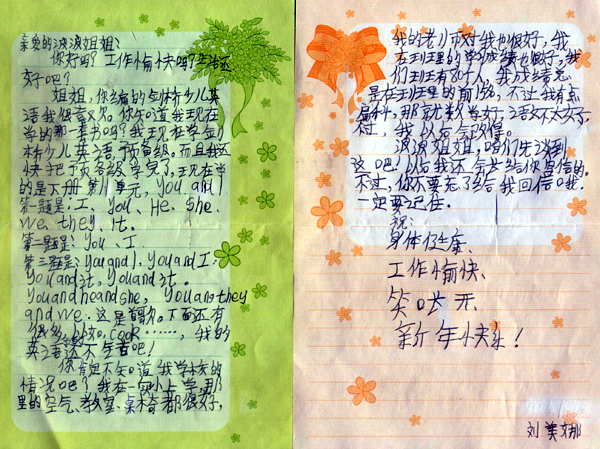 亲爱的波波姐姐:
你好吗?工作愉快吗?生活还
好吧?
姐姐,你当编的剑桥少儿英
语我很喜欢。你知道我现在
学的那一本书吗?我现在学剑
桥少儿英语预备级。而且我还
快把预备级学完了,现在学
的是下册第八单元,you and I
第一题是:I、you、He、she、
we、they、it.
第二题是:You、I.
第三题是:You and I, you and I.
You and it, you and it.
You and he and she, You and they
and we. 这是首歌。下面还有
很多,比如:cook……,我的
英语还不差吧!
你 不知道我学校的
情况吧?我在一小上学,那
里的空气、教室、桌椅都很好,
我的老师对我也很好,我
在班里的学习成绩也好,我
们班里有80个人,我成绩总
是在班里的前15名,不过我有点
偏科,那就数学好,语不太好。不
过,我以后会改得。
波波姐姐,咱们先谈到
这吧!以后我还会给你写信的。
不过,你不要忘了给我回信哦。
一定要记住。
祝:
身体健康、
工作愉快、
笑口常开、
新年快乐!
刘美娜